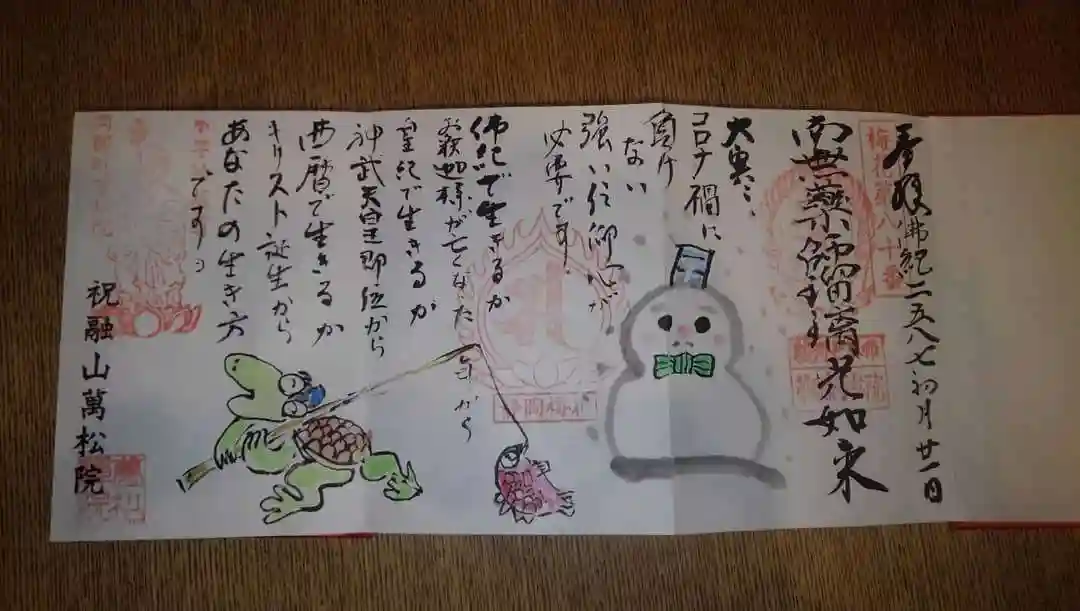 奉拝 佛紀二五八七初月廿一日
南無薬師瑠璃光如来
大寒に
コロナ禍に
負け
ない
強い信仰心が
必要です
佛紀で生きるか
お釈迦様が亡くなった年から
皇紀で生きるか
神武天皇即位から
西暦で生きるか
キリスト誕生から
あなたの生き方
です
祝融山萬松院